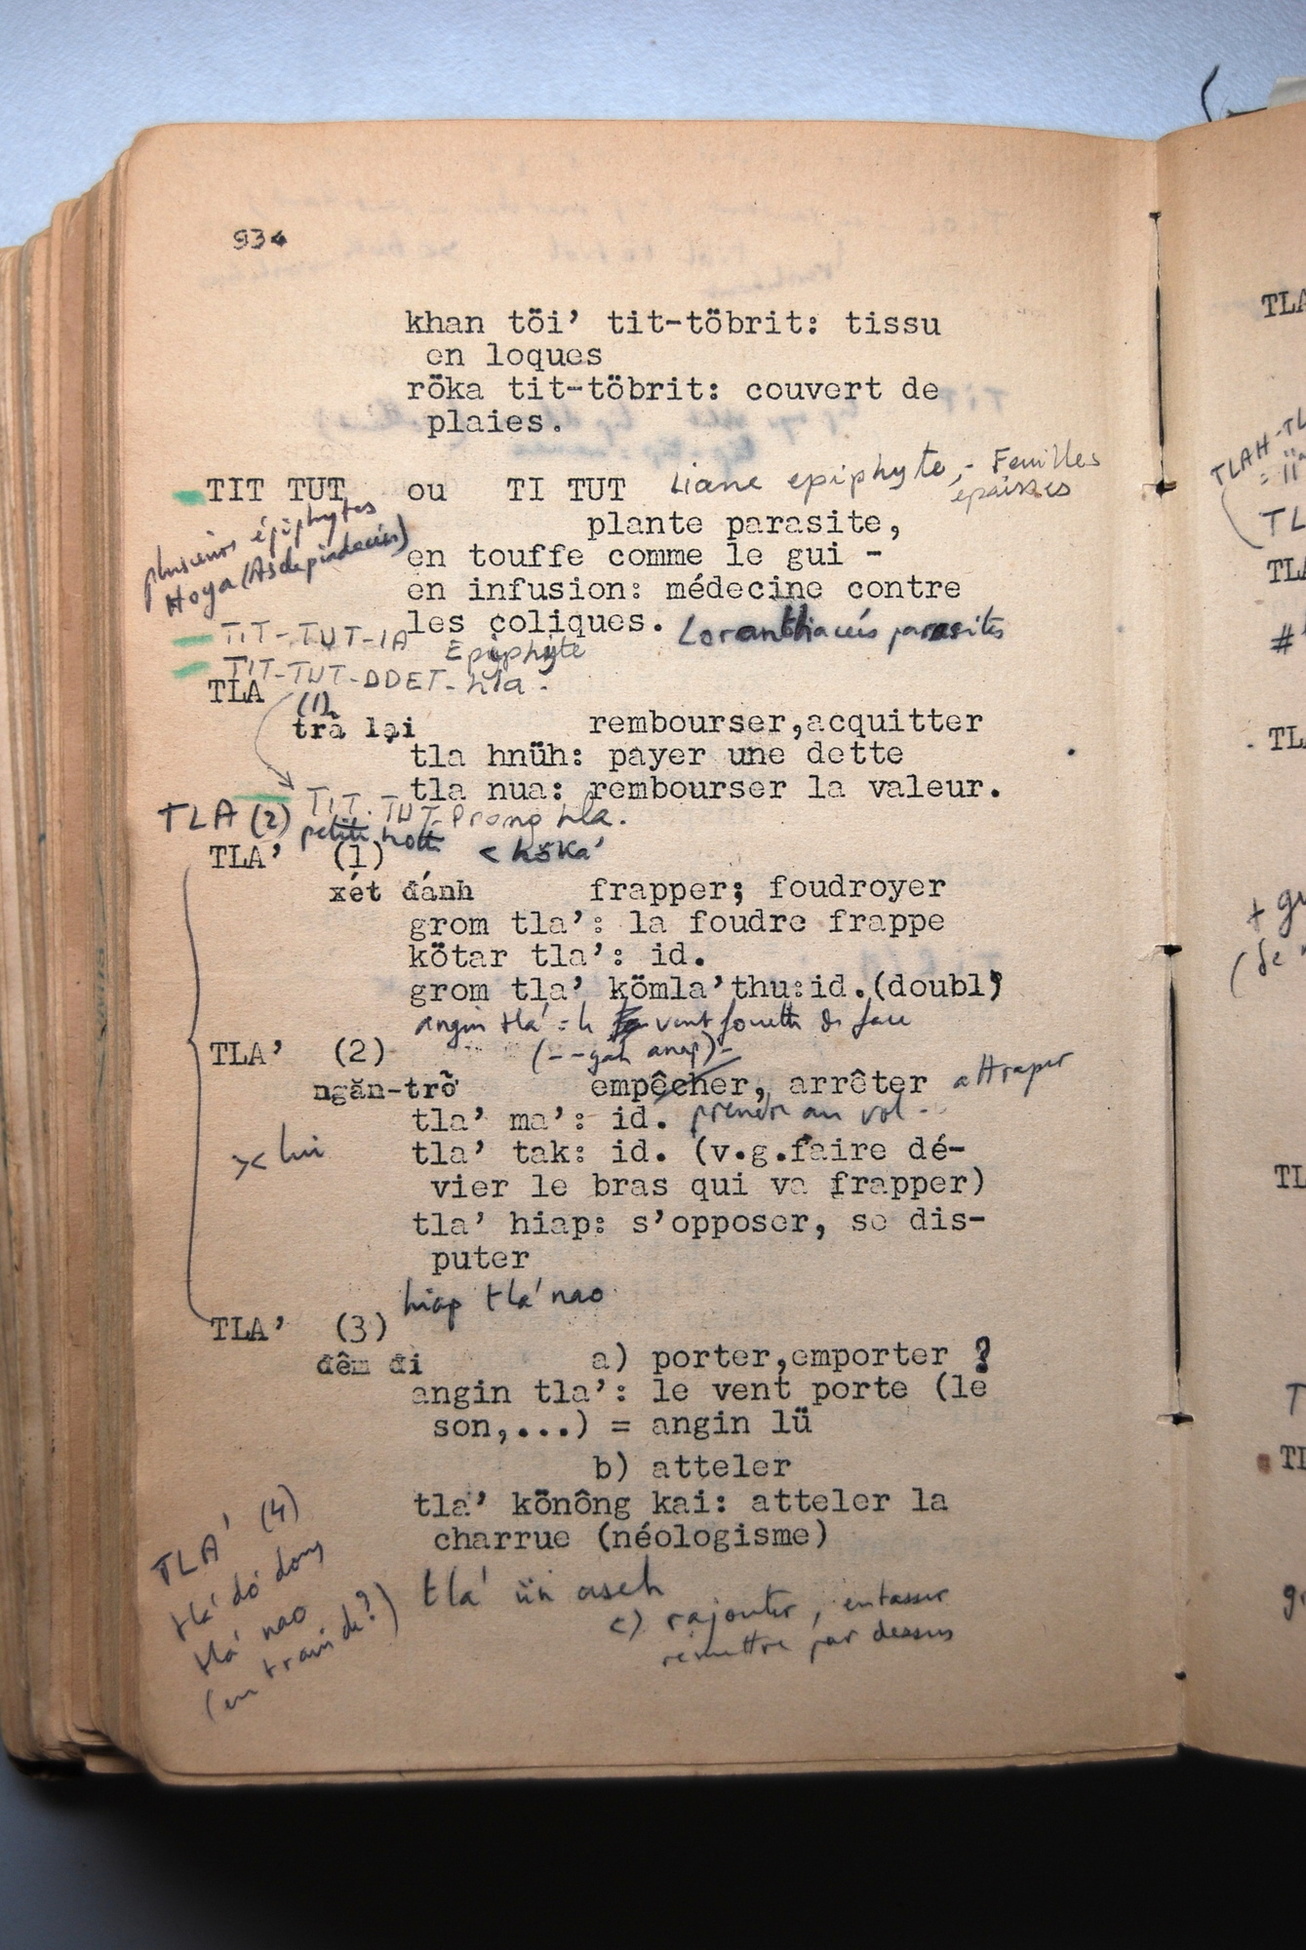 934
khan töi’ tit-töbrit: tissu
en loques
röka tit-töbrit: couvert de
plaies.
TIT TUT ou TI TUT Liane epiphyte - Feuilles
épaisses
plante parasite,
plusieurs épiphytes
Hoya (Asclepiadacées)
en touffe comme le gui -
en infusion: médecine contre
les coliques. Loranthacées parasites
TIT-TUT-IA Epiphyte
TIT-TUT-DDET-hla.
TLA (1)
trả lại rembourser,acquitter
tla hnüh: payer une dette
tla nua: rembourser la valeur.
TIT-TUT-Prong hla.
TLA (2)
TLA’ (1) < köka’
xét đánh frapper; foudroyer
grom tla’: la foudre frappe
kötar tla’: id.
grom tla’ kömla’thu:id.(doubl)
angin tla’ = le vent fouette de face
TLA’ (2) (--gah anap)-
ngăn-trở empêcher, arrêter attraper
tla’ ma’: id. prendre au vol -
>< lui
tla’ tak: id. (v.g.faire dé-
vier le bras qui va frapper)
tla’ hiap: s’opposer, se dis-
puter
hiap tla’ nao
TLA’ (3)
đêm đi a) porter,emporter ?
angin tla’: le vent porte (le
son,...) = angin lü
b) atteler
tla’ könông kai: atteler la
charrue (néologisme)
tla’ ün aseh
c) rajouter, entasser
remettre par dessus
TLA’ (4)
tla’ dö dong
tla’ nao
(en train de?)
TLA
TLAH-TL
TL
TLA
#
TL
+ gr
(de
TL
T
TL